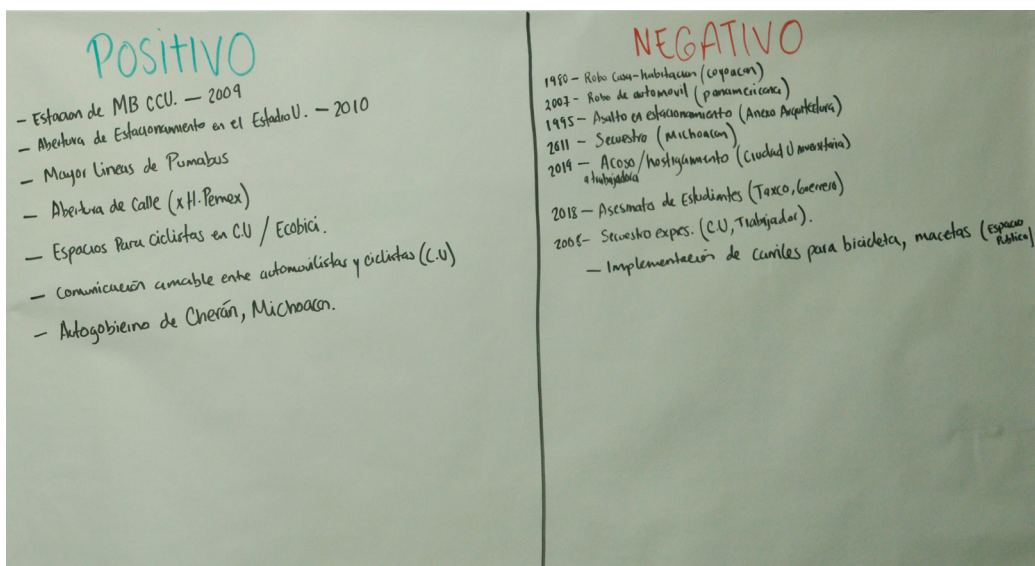 POSITIVO
- Estacion de MB CCU. - 2009
- Abertura de Estacionamiento en el Estadio U. - 2010
- Mayor Lineas de Pumabus
- Abertura de Calle (x H. Pemex)
- Espacios Para ciclistas en C.U / Ecobici.
- Comunicación amable entre automovilistas y ciclistas (C.U)
- Autogobierno de Cherán, Michoacan.
NEGATIVO
1980 - Robo Casa-habitacion (coyoacan)
2007 - Robo de automovil (panamericana)
1995 - Asalto en estacionamiento (Anexo Arquitectura)
2011 - Secuestro (Michoacan)
2019 - Acoso/hostigamiento (Ciudad Universitaria)
a trabajadora
2018 - Asesinato de Estudiantes (Taxco, Guerrero)
2008 - Secuestro expres. (C.U, Trabajador).
- Implementación de carriles para bicicleta, macetas (Espacio
Público)